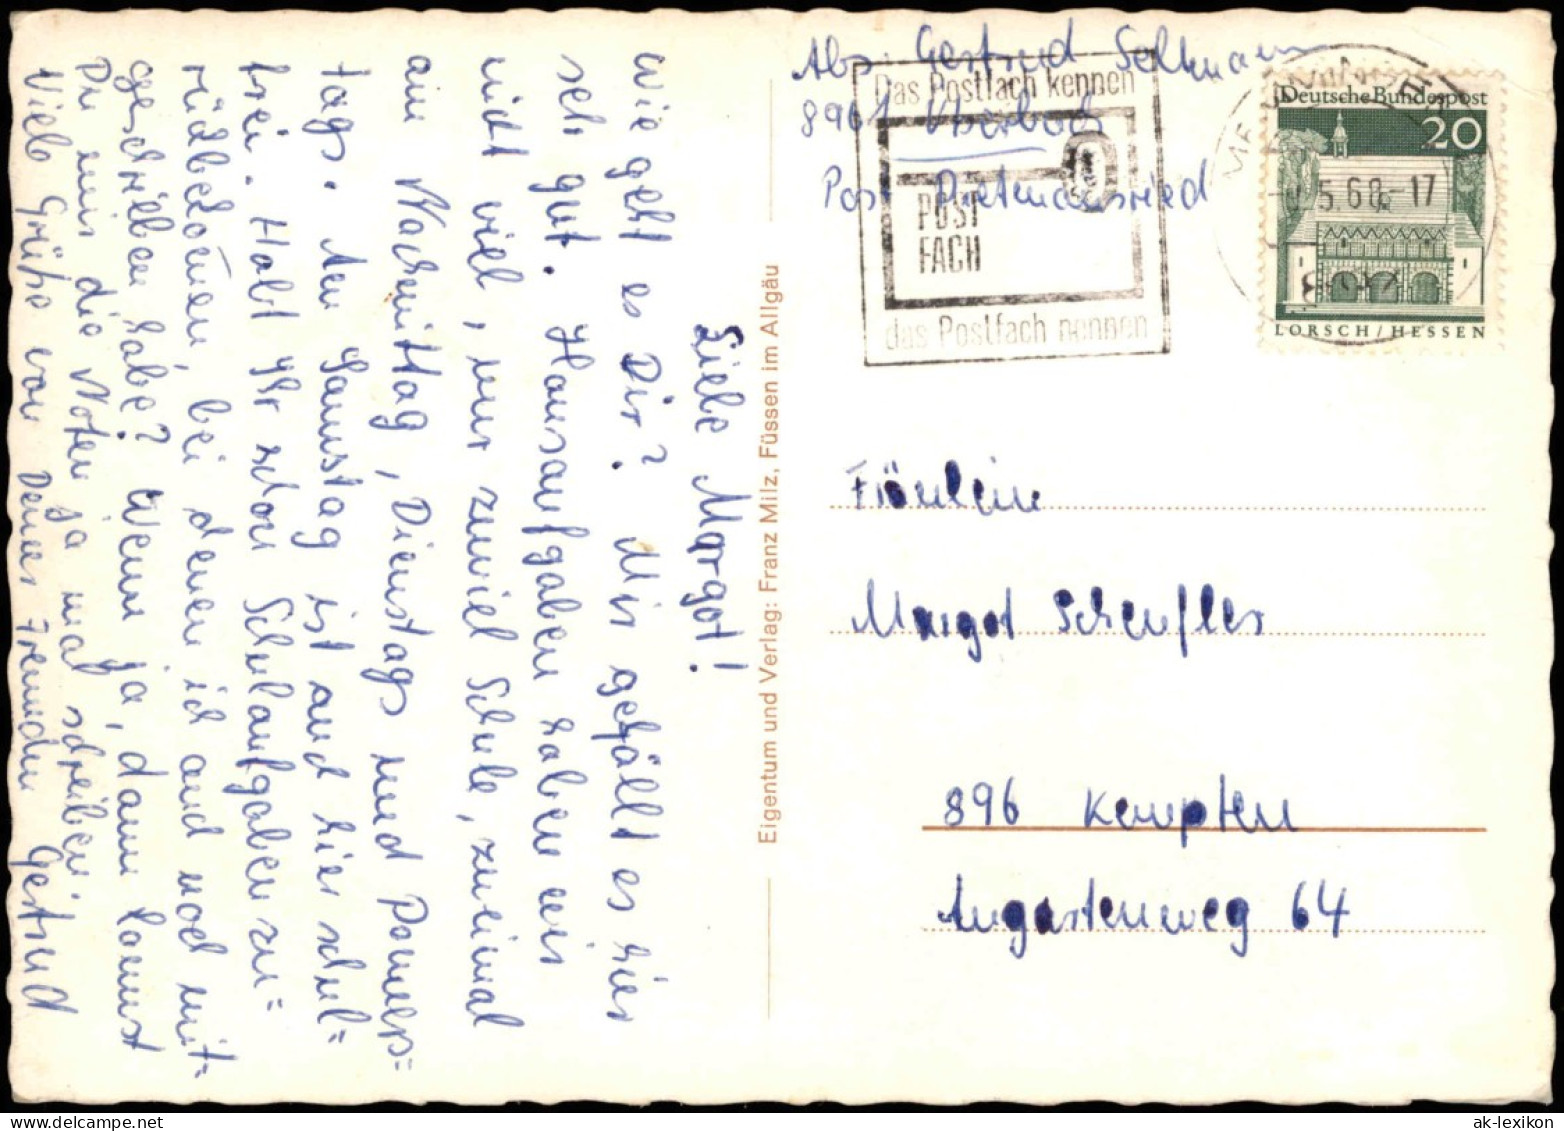 Liebe Margot!
wie geht es Dir? Mir gefällt es hier
sehr gut. Hausaufgaben haben wir
nicht viel, nur zuviel Schule, zweimal
am Nachmittag, Dienstags und Donners=
tags. Am Samstag ist auch hier schul=
frei. Habt Ihr schon Schulaufgaben zu=
rückbekommen, bei denen ich auch noch mit=
geschrieben habe? Wenn ja, dann kannst
Du mir die Noten ja mal schreiben.
Viele Grüße von Deiner Freundin Gertrud
Eigentum und Verlag: Franz Milz, Füssen im Allgäu
Abs. Gertrud
8961
Post
Das Postfach kennen
POST
FACH
das Postfach nennen
Deutsche Bundespost
20
5.68-17
LORSCH/HESSEN
Fräulein
Margot Scheufler
896 Kempten
Augartenweg 64
ak-lexikon.com